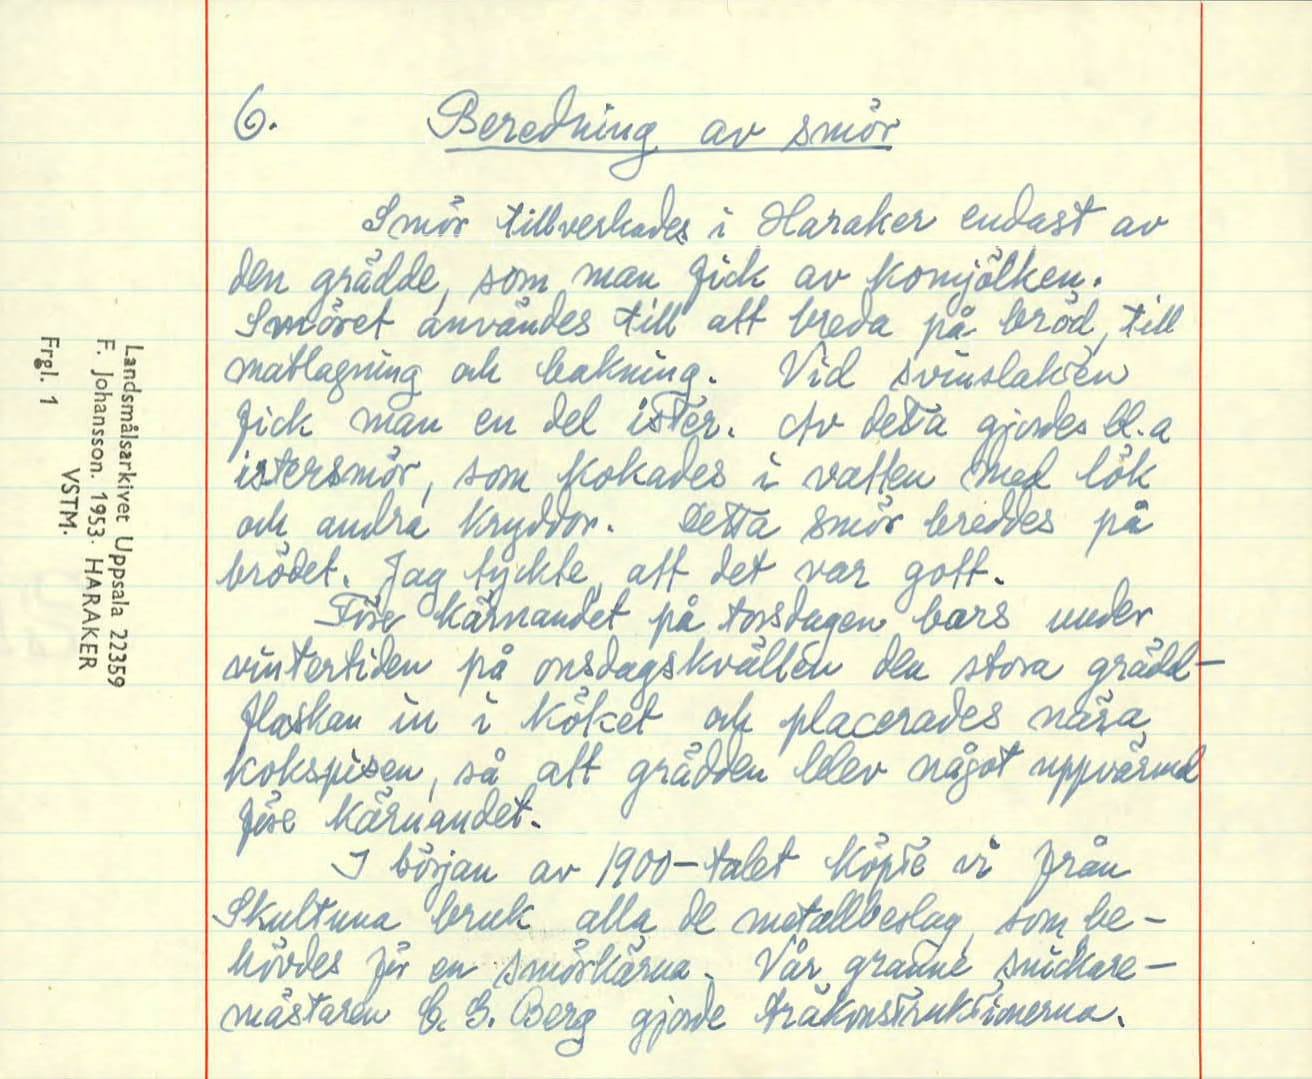 6. Beredning av smör
Smör tillverkades i Haraker endast av
den grädde, som man fick av komjölken.
Smöret användes till att breda på bröd, till
matlagning och bakning. Vid svinslakten
fick man en del ister. Av detta gjordes bl.a
istersmör, som kokades i vatten med lök
och andra kryddor. Detta smör breddes på
brödet. Jag tyckte, att det var gott.
Före kärnandet på torsdagen bars under
vintertiden på onsdagskvällen den stora grädd-
flaskan in i köket och placerades nära
kokspisen, så att grädden blev något uppvärmd
före kärnandet.
I början av 1900-talet köpte vi från
Skultuna bruk alla de metallbeslag, som be-
hövdes för en smörkärna. Vår granne snickare-
mästaren C. G. Berg gjorde träkonstruktionerna.
Landsmålsarkivet Uppsala 22359
F. Johansson. 1953. HARAKER
VSTM.
Frgl. 1